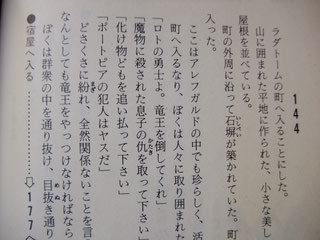 144
ラダトームの町へ入ることにした。
山に囲まれた平地に作られた、小さな美し
屋根を並べている。
町の外周に沿って石塀が築かれていた。町
いしべい
入った。
ここはアレフガルドの中でも珍らしく、活
町へ入るなり、ぼくは人々に取り囲まれた
「ロトの勇士よ。竜王を倒してくれ」
「魔物に殺された息子の仇を取って下さい」
かたき
「化け物どもを追い払って下さい」
「ポートピアの犯人はヤスだ」
どさくさに紛れ、全然関係ないことを言
まぎ
なんとしても竜王をやっつけなければなら
ぼくは群衆の中を通り抜け、目抜き通り
めぬ
●宿屋へ入る
⇨177へ